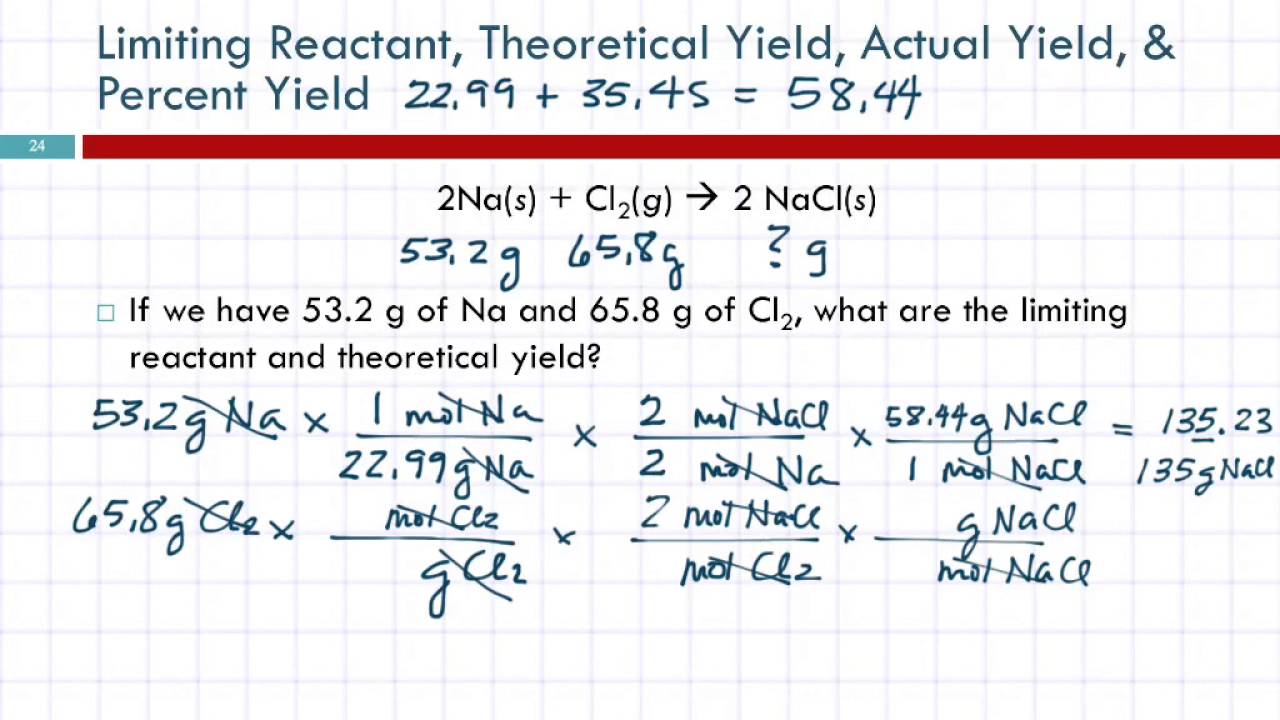 Limiting Reactant, Theoretical Yield, Actual Yield, &
Percent Yield 22.99 + 35.45 = 58.44
24
2Na(s) + Cl₂(g) → 2 NaCl(s)
53.2g 65.8g ? g
□ If we have 53.2 g of Na and 65.8 g of Cl₂, what are the limiting
reactant and theoretical yield?
53.2g Na × 1 mol Na / 22.99g Na × 2 mol NaCl / 2 mol Na × 58.44g NaCl / 1 mol NaCl = 135.23
135g NaCl
65.8g Cl₂ × mol Cl₂ / g Cl₂ × 2 mol NaCl / mol Cl₂ × g NaCl / mol NaCl